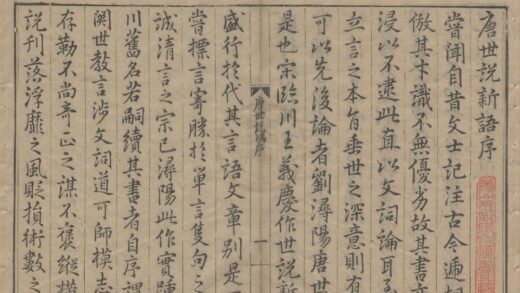 唐世説新語序
嘗聞自昔文士記注古今遞相
倣其才識不無優劣故其書亦
浸以不逮此直以文詞論耳至
立言之本旨垂世之深意則有
可以先後論者劉潯陽唐世
是也宋臨川王義慶作世説新
唐世説序
一
盛行於代其言語文章别是
嘗標言寄勝於單言隻句之
誠清言之宗已潯陽此作實踵
川舊名若嗣續其書者自序謂
闕世教言渉文詞道可師模志
存勸不尚奇正之謀不襃縱横
説刊落浮靡之風貶損術數之